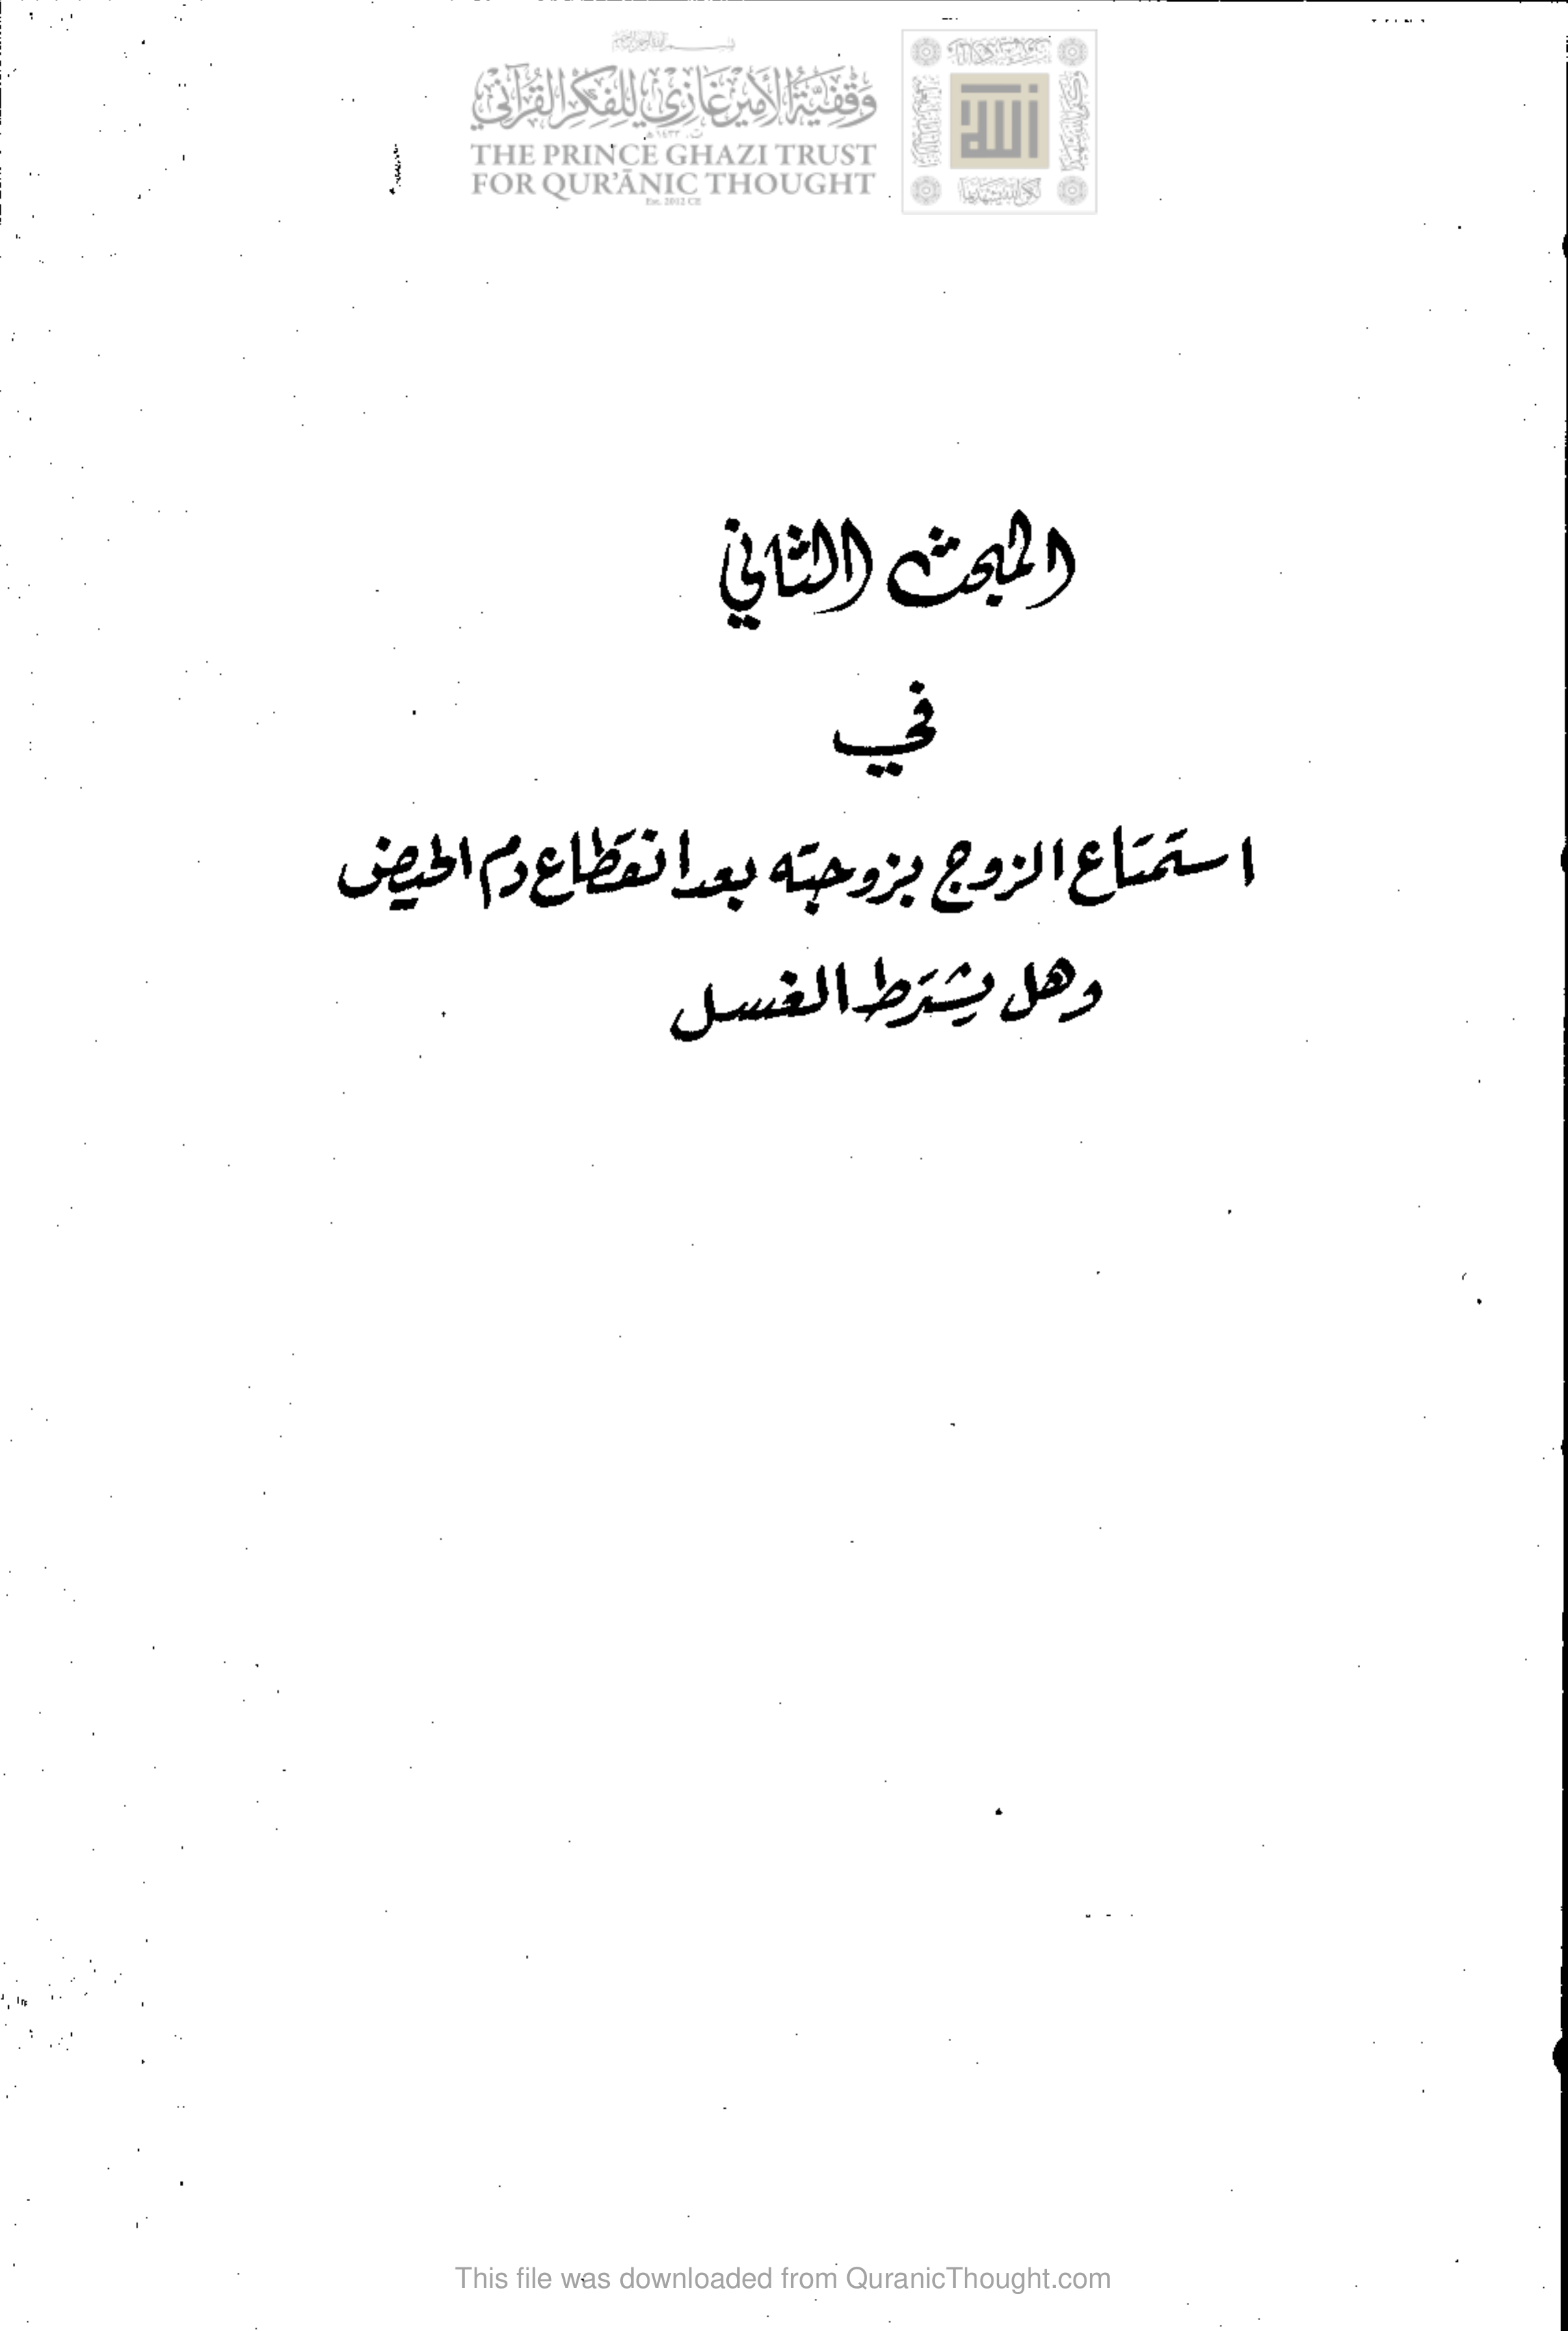 وقفية الأمير غازي للفكر القرآني
THE PRINCE GHAZI TRUST
FOR QUR'ĀNIC THOUGHT
Est. 2012 CE
المبحث الثاني
في
استمتاع الزوج بزوجته بعد انقطاع دم الحيض
وهل يشترط الغسل
This file was downloaded from QuranicThought.com